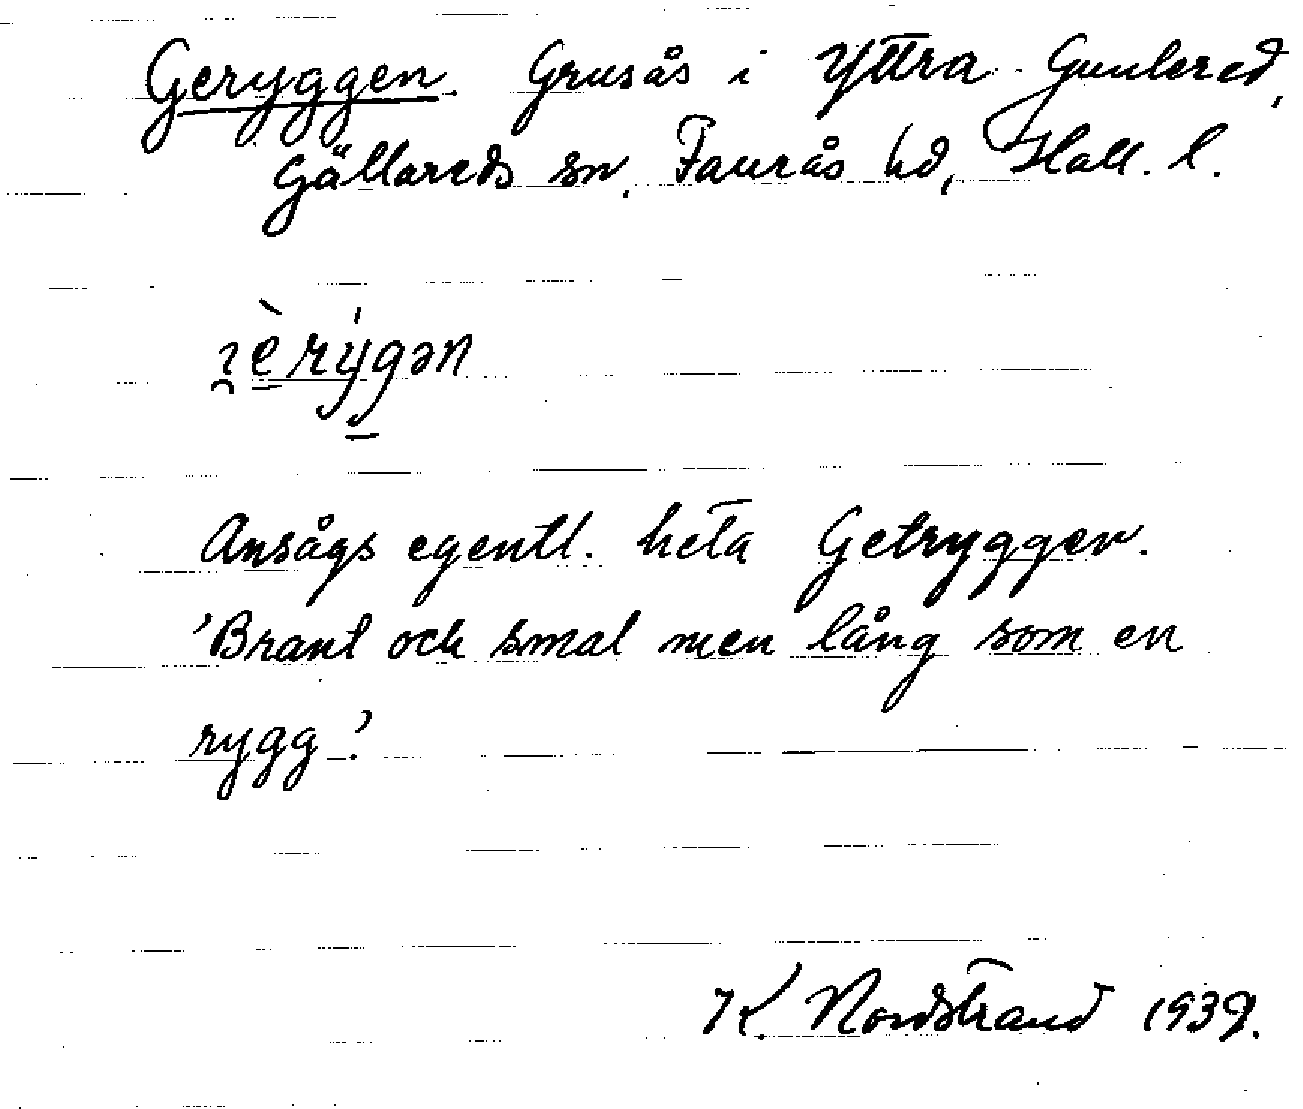 Geryggen. Grusås i Yttra Gunlered,
Gällareds sn. Faurås hd, Hall. l.
Ansågs egentl. heta Getryggen.
'Brant och smal men lång som en
rygg.'
K. Nordstrand 1939.